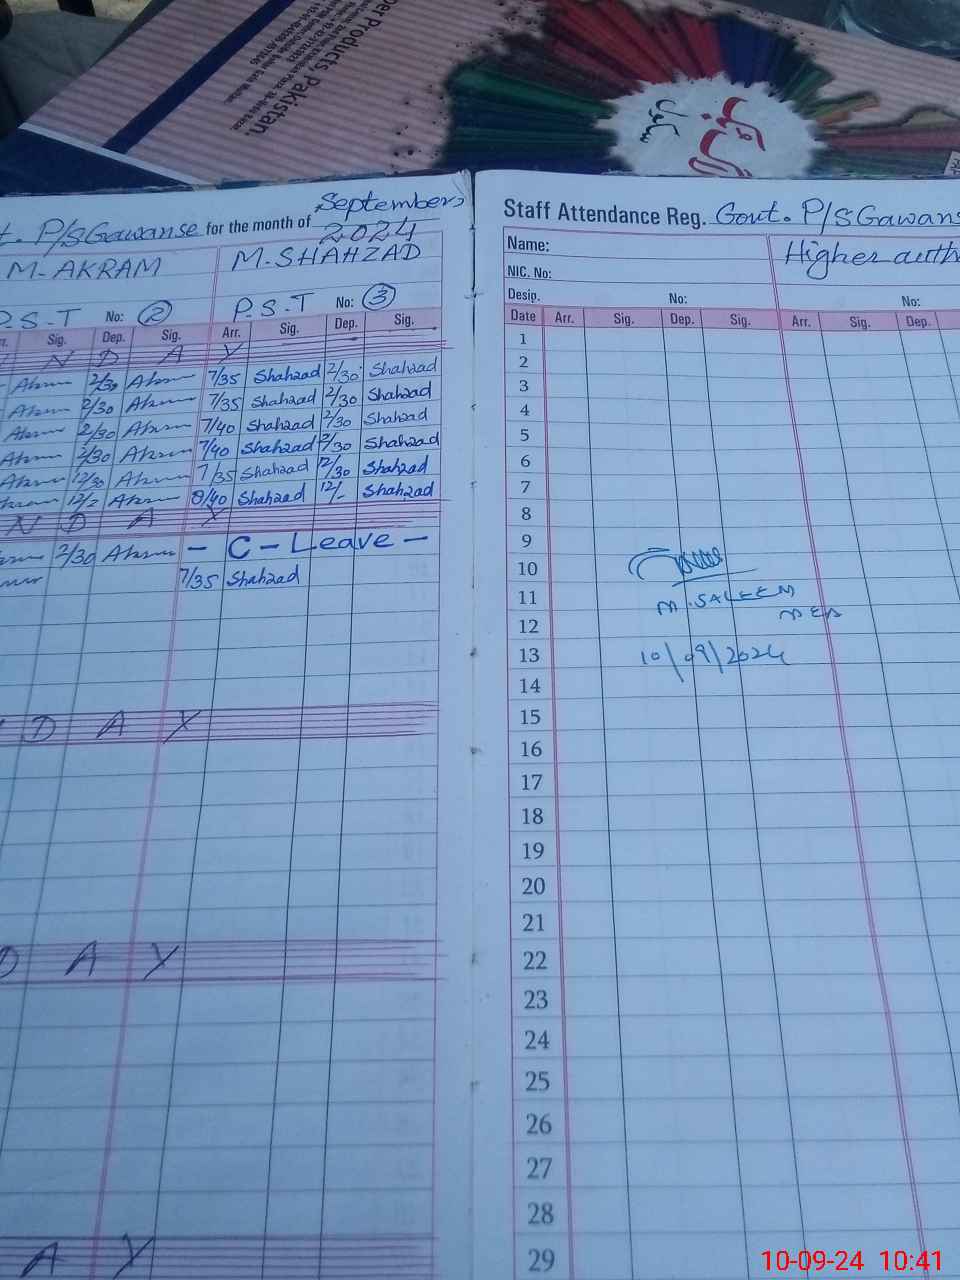 per Products Pakistan.
t. P/S Gawanse for the month of September,
2024
M-AKRAM M.SHAHZAD
P.S-T No: 2 P.S.T No: 3
rr. Sig. Dep. Sig. Arr. Sig. Dep. Sig.
N D A Y
Akram 2/30 Akram 7/35 Shahzad 2/30 Shahzad
Akram 2/30 Akram 7/35 Shahzad 2/30 Shahzad
Akram 2/30 Akram 7/40 Shahzad 2/30 Shahzad
Akram 2/30 Akram 7/40 Shahzad 2/30 Shahzad
Akram 12/30 Akram 7/35 Shahzad 12/30 Shahzad
Akram 12/- Akram 8/40 Shahzad 12/- Shahzad
N D A Y
2/30 Akram - C - Leave -
7/35 Shahzad
D A Y
D A Y
A Y
Staff Attendance Reg. Govt. P/S Gawans
Name: Higher auth
NIC. No:
Desig. No: No:
Date Arr. Sig. Dep. Sig. Arr. Sig. Dep.
1
2
3
4
5
6
7
8
9
10
11 M.SALEEM
12 MEA
13 10/09/2024
14
15
16
17
18
19
20
21
22
23
24
25
26
27
28
29
10-09-24 10:41